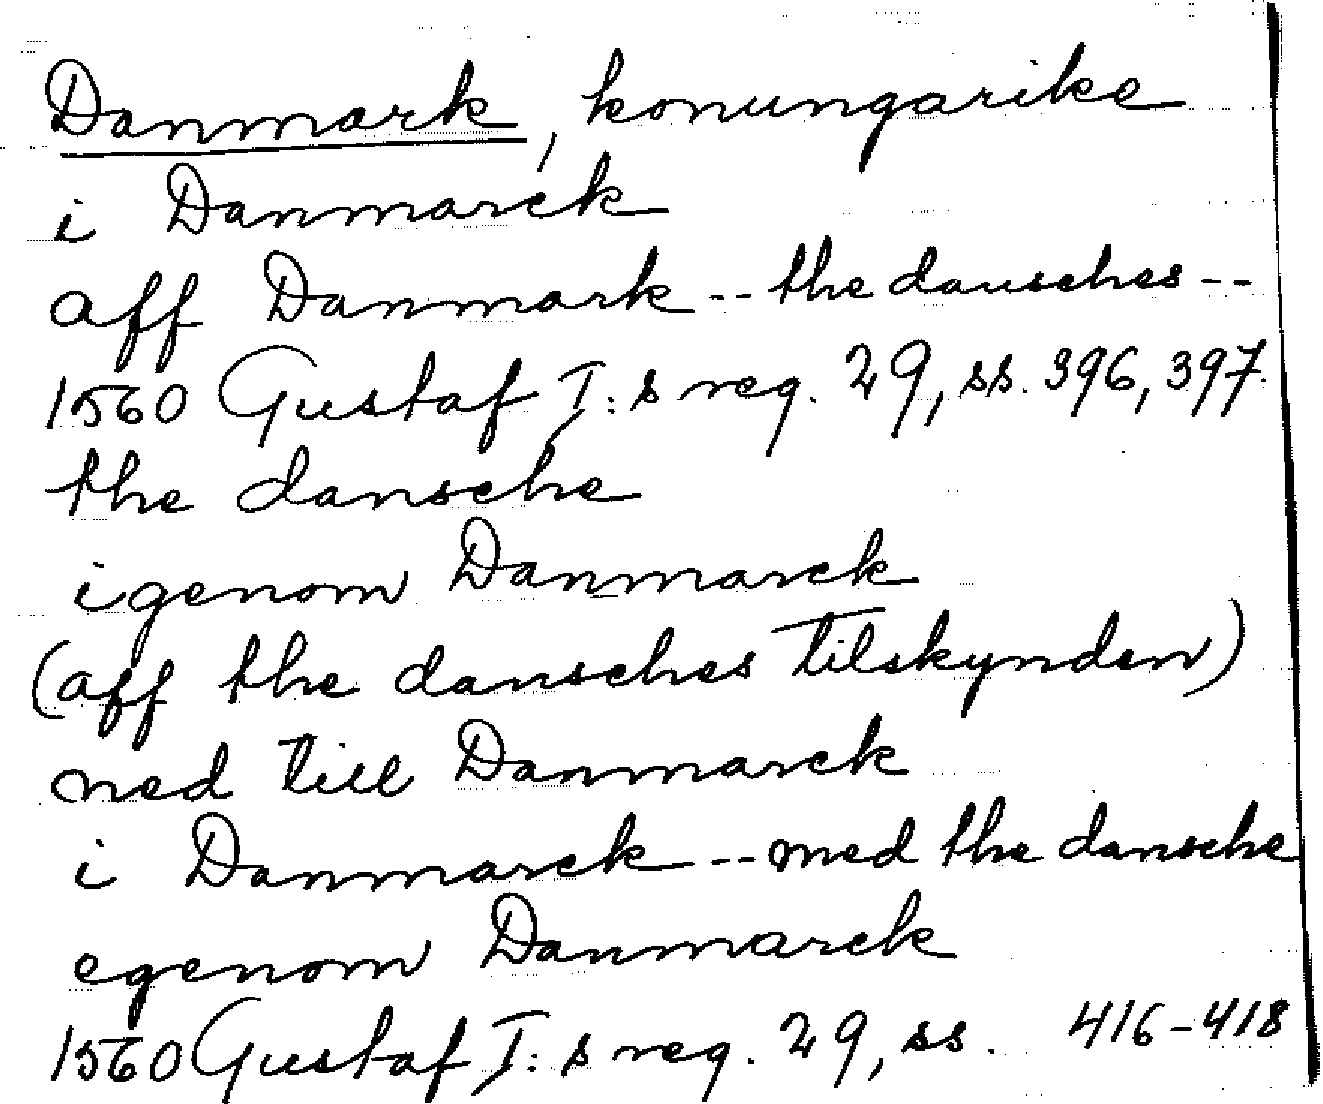 Danmark, konungarike
i Danmarck
aff Danmark -- the dansches --
1560 Gustaf I:s reg. 29, ss. 396, 397.
the dansche
igenom Danmarck
(aff the dansches tilskynden)
ned till Danmarck
i Danmarck -- med the dansche
egenom Danmarck
1560 Gustaf I:s reg. 29, ss. 416-418